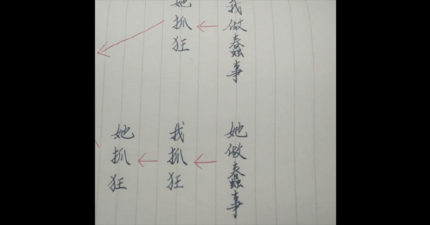 我做蠢事
她抓狂
她做蠢事
我抓狂
她抓狂